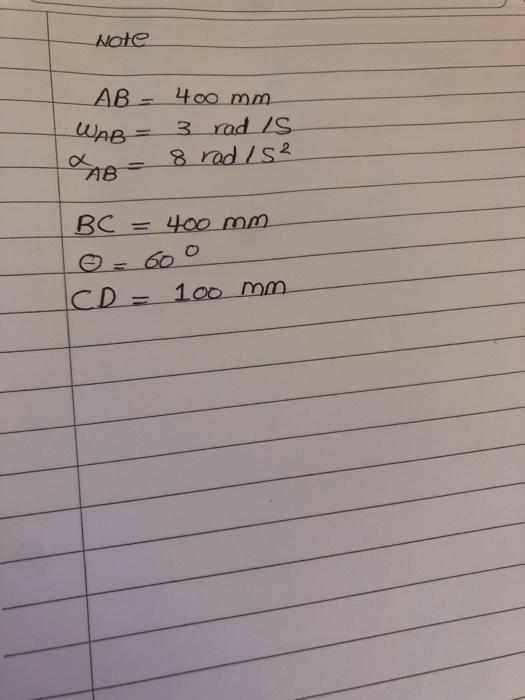 Note
AB = 400 mm
ωAB = 3 rad /s
αAB = 8 rad / s²
BC = 400 mm
Θ = 60°
CD = 100 mm